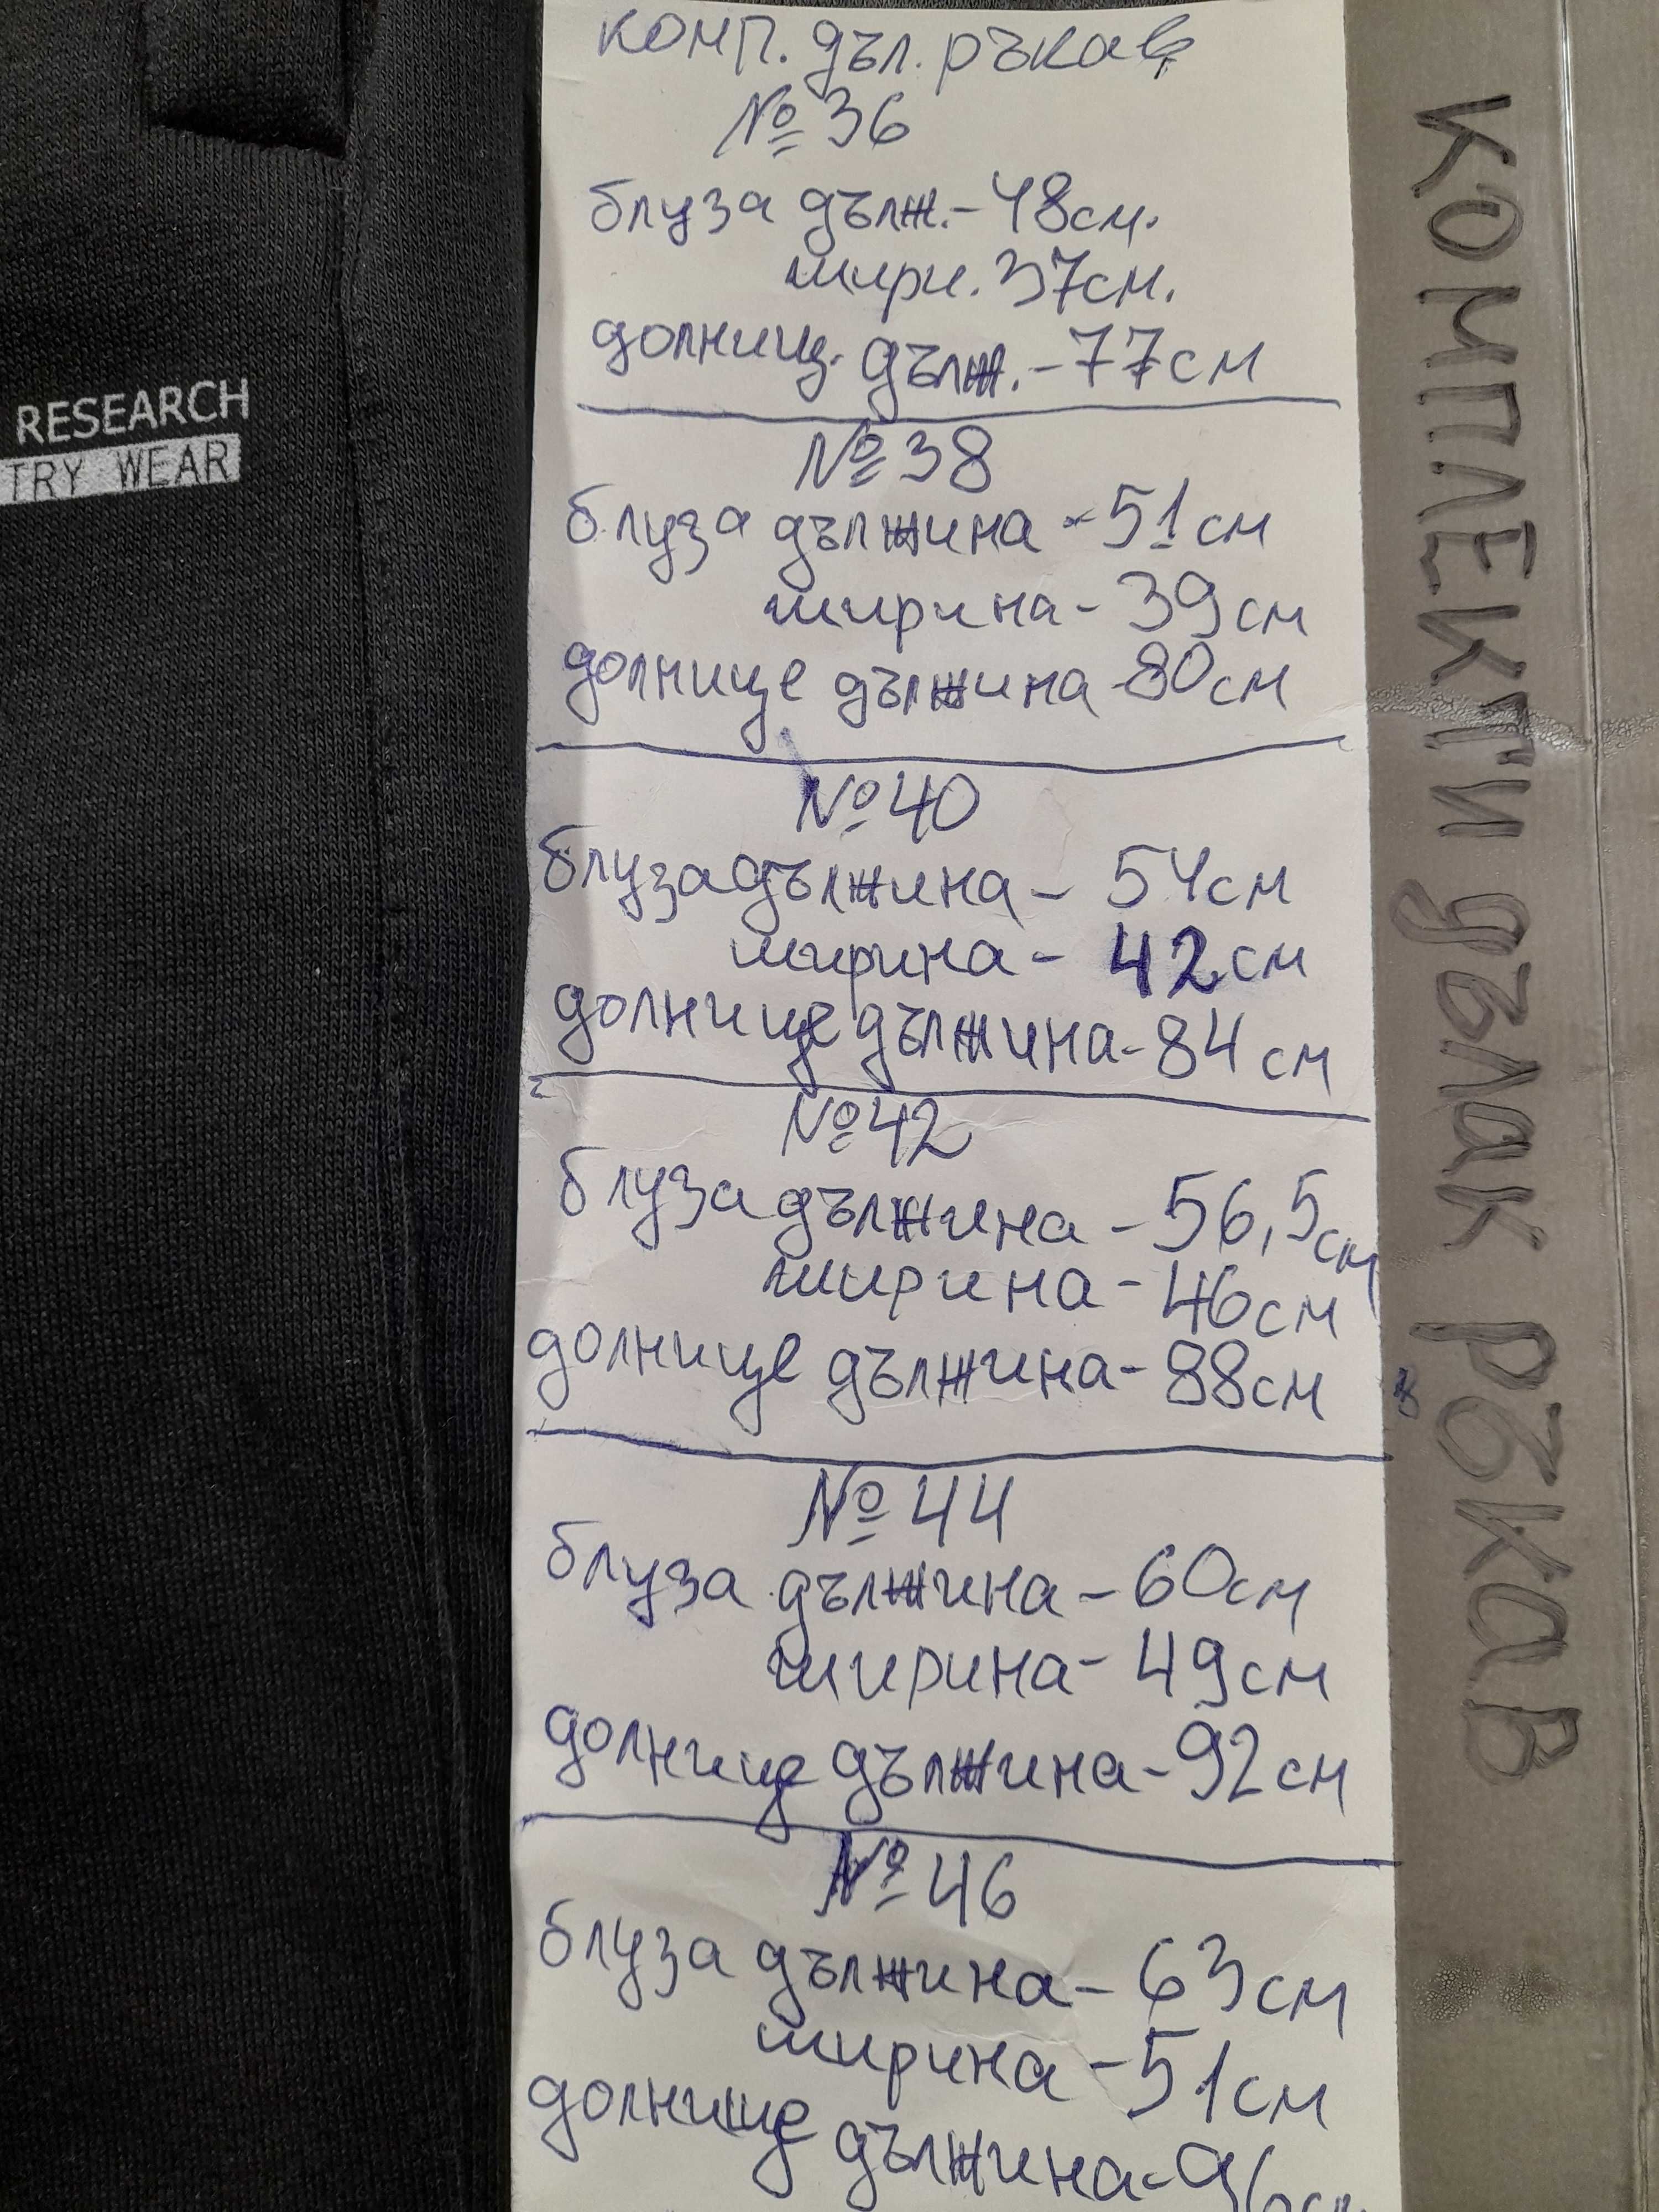 RESEARCH
TRY WEAR
комп. дъл. ръкав
№36
блуза дълж.-48см.
шири. 37см.
долниц. дълж.-77см
№38
блуза дължина -51см
ширина-39см
долнище дължина-80см
№40
блуза дължина- 54см
ширина- 42см
долнище дължина-84см
№42
блуза дължина-56,5см
ширина-46см
долнище дължина-88см
№44
блуза дължина-60см
ширина-49см
долнище дължина-92см
№46
блуза дължина-63см
ширина-51см
долнище дължина-96см
КОМПЛЕКТИ дълак РЪКАВ